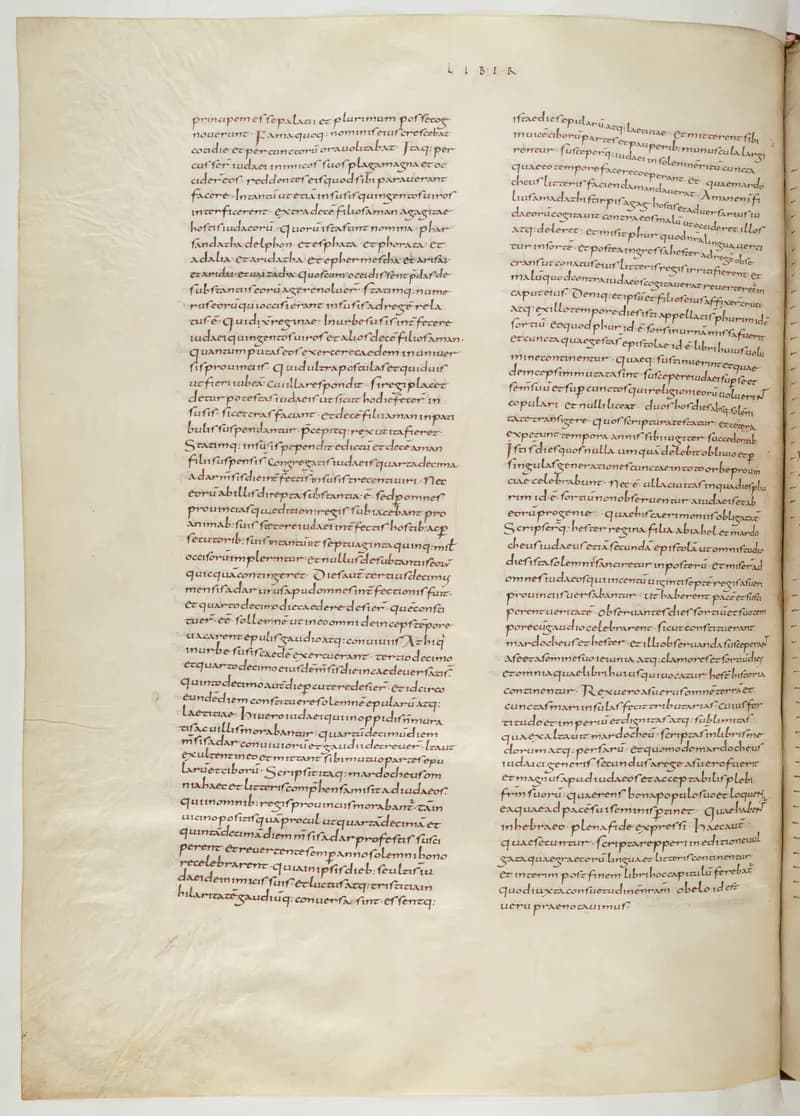 LIBER
principem esse palatii et plurimum posse cog
noverant · Fama quoq: nominis eius crescebat
cotidie et per cunctorū ora volitabat · Itaq: per
cusserᵗ iudaei inimicos suos plaga magna et oc
cider eos · reddentes eis quod sibi paraverant
facere · In tantū ut etiā in susis quingentos viros
interficerent · extra decē filios aman agagitae
hostis iudaeorū · Quorū ista sunt nomina · phar
sandatha delphon · et esphata · et phorata · et
adalia · et aridatha · et ephermestha · et arisai ·
et aridai · et vaizatha · quos cum occidissent p̄das de
substantiis eorū agere noluerᵗ · statimq: nume
rus eorū qui occisi erant in susis ad regē rela
tus ē · Qui dix̄ reginae · In urbe susis intfecere
iudaei quingentos viros et alios decē filios aman ·
quantum putas eos exercere caedem in univer
sis provinciis · Quid ultra postulas et quid vis
ut fieri iubeā · Cui illa respondit · si regi placet
detur potestas iudaeis ut sicut hodie feceꝛ̄ in
susis · sic et cras faciant · et decē filii aman in pati
bulis suspendantur · p̄cepitq: rex ut ita fieret ·
Statimq: in susis pependit edictū et decē aman
filii suspensi · Congregatis iudaeis quarta decima
adar m̄sis die intfecti s̄ in susis trecenti viri · Nec
eorū ab illis direpta substantia ē · sed p omnes
provincias quę dicioni regis subiacebant pro
animab: suis stetere iudaei intfectis hostib: ac p̄
secutorib: suis in tantū ut septuaginta quinq: mil̄
occisorū implerentur · et nullus de substantiis eorū
quicquā contingeret · Dies autē tertius decimus
mensis adar unus apud omnes intfectionis fuit ·
et quarto decimo die caedere desierᵗ · quē consti
tuerᵗ eē sollemnē ut in eo omni deinceps tēpore
vacarent epulis gaudio atq: conviviis · At hi q̇
in urbe susis caedē exercuerant · tertio decimo
et quarto decimo eiusdē m̄sis die in caede versati s̄ ·
quinto decimo autē die pcutere desierᵗ · et idcirco
eundē diem constituere solemnē epularū atq:
laetitiae · Hi vero iudaei qui in oppidis n̄ mura
tis ac villis morabantur · quartū decimū diem
m̄sis adar conviviorū et gaudii decreverᵗ · ita ut
exultent in eo et mittant sibi mutuo partes epu
larū et ciborū · Scripsit itaq: mardocheus om
nia haec et litteris comp̄hensa misit ad iudaeos
qui in omnib: regis provinciis morabantᷓ · tā in
vicino positis quā procul ut quartā decimā et
quintā decimā diem m̄sis adar pro festis susci
perent · et revertente semper anno solemni hono
re celebrarent · quia in ipsis dieb: se ulti s̄ iu
daei de inimicis suis et luctus atq: tristitia in
hilaritatē gaudiūq: conversa sint · essentq:
ista dies epularū atq: laetitiae · et mitterent sibi
invicē ciborū partes et pauperib: munuscula largi
rentur · susceperᵗq: iudaei in solemnē ritū cuncta
quae eo tempore facere coeperant · et quae mardo
cheus litteris facienda mandaverat · Aman enī fi
lius amadathi stirpis agag hostis et adversarius iu
daeorū cogitavit contra eos malū ut occideret illos
atq: deleret · et misit phur quod nr̄a lingua verti
tur in sortē · et postea ingressa hester ad regē obse
crans ut conatus eius litteris regis irriti fierent et
malū quod contra iudaeos cogitaverat reverteretur in
caput eius · Deniq: et ipsū et filios eius affixerᵗ cruci
atq: ex illo tempore dies isti appellati s̄ phurim id ē
sortiū eo quod phur id ē sors in urnā missa fuerit
et cuncta quae gesta s̄ epistolae id ē libri huius volu
mine continentur · quaeq: sustinuerint et quae
deinceps immutata sint · suscepere iudaei sup se et
semē suū et sup cunctos qui religioni eorū voluerīᵗ
copulari · et nulli liceat · duos hos dies absq: solēni
tate transigere · quos scriptura testatur · et certa
expetunt tempora annis sibi iugiter succedentib:
Isti dies quos nulla umquā delebit oblivio et p
singulas generationes cunctae in toto orbe provin
ciae celebrabunt · Nec ē ulla civitas in qua dies phu
rim id ē sortiū non observentur a iudaeis et ab
eorū progenie · quae his caerimoniis obligata ē
Scripserᵗq: hester regina filia abiahel et mardo
cheus iudaeus etiā secundā epistolā ut omni studio
dies ista solemnis sanciretur in posterū · et miserᵗ ad
omnes iudaeos qui in centū viginti septē regis asueri
provinciis versabantur · ut haberent pacē et susci
perent veritatē · observantes dies sortiū et suo tem
pore cū gaudio celebrarent · sicut constituerant
mardocheus et hester · et illi observanda susceperanᵗ
a se et a semine suo ieiunia atq: clamores et sortiū dies
et omnia quae libri huius qui vocatur hester historia
continentur · Rex vero asuerus omnē terrā et
cunctas maris insulas fecit tributarias cuius for
titudo et imperiū et dignitas atq: sublimitas
qua exaltavit mardocheū · scripta s̄ in libris me
dorum atq: persarū · et quomodo mardocheus
iudaici generis secundus a rege asuero fuerit
et magnus apud iudaeos et acceptabilis plebi
frm̄ suorū · quaerens bona populo suo et loquens
ea quae ad pacē sui seminis ptinet · Quae habenᵗ
in hebraeo · plena fide expressi · haec autē
quae secuntur · scripta repperi in editione vul
gata quae graecorū lingua et litteris continentur
et interim post finem libri hoc capitulū ferebatᷓ
quod iuxta consuetudinē nr̄am obelo id est
veru praenotavimus